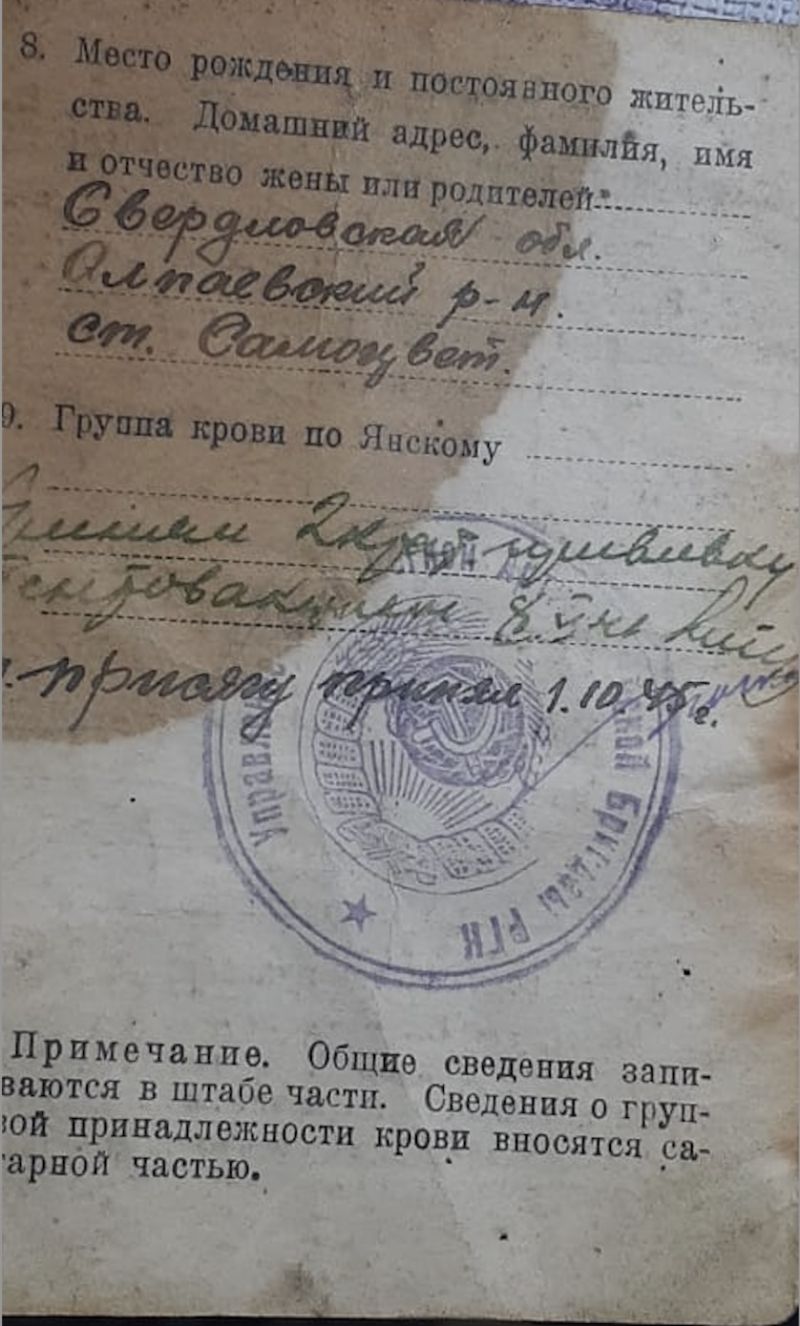 8. Место рождения и постоянного житель-
ства. Домашний адрес, фамилия, имя
и отчество жены или родителей
Свердловская обл.
Алпаевский р-н.
ст. Самоцвет.
9. Группа крови по Янскому
2крат прививку
8.V
присягу принял 1.10.45г.
Управлен
ской бригады РГК
Примечание. Общие сведения запи-
ваются в штабе части. Сведения о груп-
вой принадлежности крови вносятся са-
тарной частью.